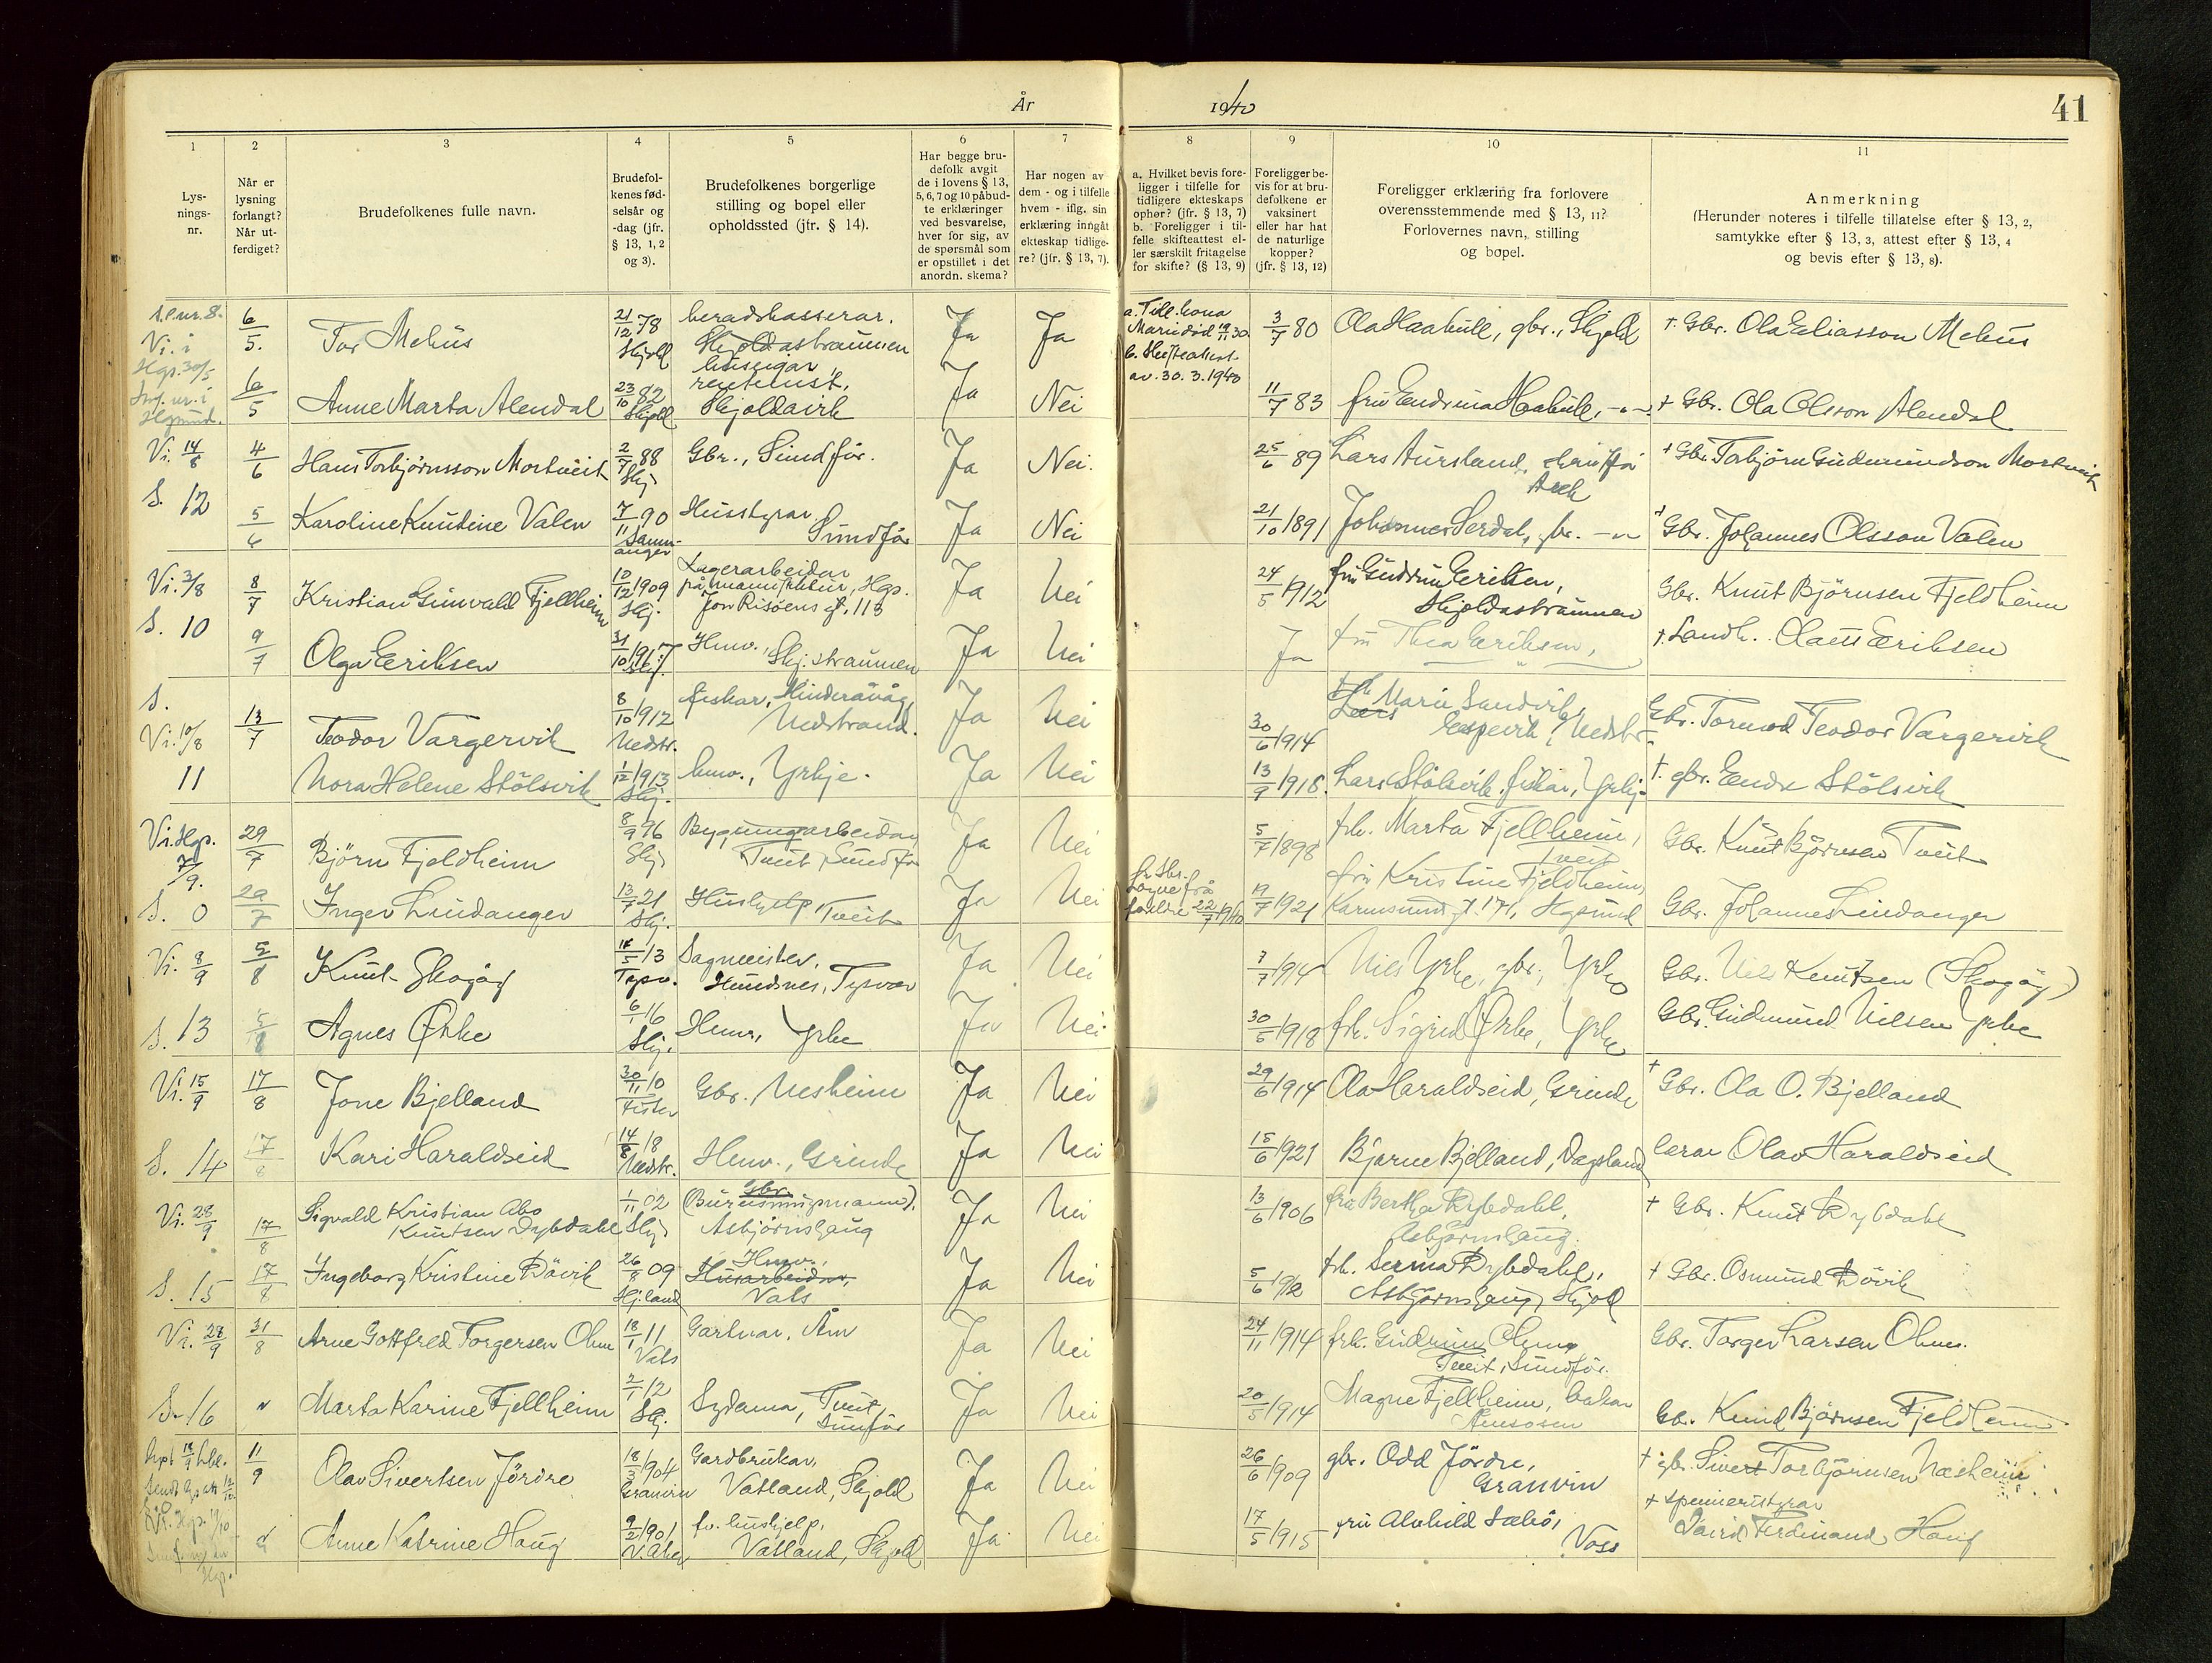 År 1940
41
1
Lys-
nings-
nr.
2
Når er
lysning
forlangt?
Når ut-
ferdiget?
3
Brudefolkenes fulle navn.
4
Brudefol-
kenes fød-
selsår og
-dag (jfr.
§ 13, 1, 2
og 3).
5
Brudefolkenes borgerlige
stilling og bopel eller
opholdssted (jfr. § 14).
6
Har begge bru-
defolk avgit
de i lovens § 13,
5, 6, 7 og 10 påbud-
te erklæringer
ved besvarelse,
hver for sig, av
de spørsmål som
er opstillet i det
anordn. skema?
7
Har nogen av
dem - og i tilfelle
hvem - iflg. sin
erklæring inngåt
ekteskap tidlige-
re? (jfr. § 13, 7).
8
a. Hvilket bevis fore-
ligger i tilfelle for
tidligere ekteskaps
ophør? (jfr. § 13, 7)
b. Foreligger i til-
felle skifteattest el-
ler særskilt fritagelse
for skifte? (§ 13, 9)
9
Foreligger be-
vis for at bru-
defolkene er
vaksinert
eller har hat
de naturlige
kopper?
(jfr. § 13, 12)
10
Foreligger erklæring fra forlovere
overensstemmende med § 13, 11?
Forlovernes navn, stilling
og bopel.
11
Anmerkning
(Herunder noteres i tilfelle tillatelse efter § 13, 2,
samtykke efter § 13, 3, attest efter § 13, 4
og bevis efter § 13, 8).
6/5. Tor Mehus 21/12 78 Skjold heradskasserar, Skjoldastraumen Ja Ja 3/7 80 Ola Haahull, gbr., Skjold † Gbr. Ola Eliasson Mehus
b. Skifteattest av 30.3.1940
6/5 Anne Marta Alendal 23/10 82 Skjold Skjoldavik Ja Nei 11/7 83 fru Endrina Haahull, † Gbr. Ola Olsson Alendal
Vi. 14/8 4/6 Hans Torbjørnsson Mortveit 2/7 88 Skj. Gbr., Sundfør. Ja Nei. 25/6 89 Lars Aursland, † Gbr. Torbjørn Gudmundson Mortveit
S. 12 5/6 Karoline Knutine Valen 7/11 90 Samnanger Husstyrar Sundfør Ja Nei 21/10 1891 Johannes Serdal, gbr. Gbr. Johannes Olsson Valen
Vi. 3/8 8/7 Kristian Gunvald Fjellheim 10/12 1909 Skj. Lagerarbeidar Jon Risøens gt. 118 Ja Nei 24/5 1912 fru Gudrun Eriksen, Skjoldastraumen Gbr. Knut Bjørnsen Fjeldheim
S. 10 9/7 Olga Eriksen 31/10 1917 Skj. Hmv., Skj.straumen Ja Nei Ja fru Thea Eriksen, † Landh. Claus Eriksen
S. Vi. 10/8 13/7 Teodor Vargervik 8/10 1912 Nedstr. fiskar, Hinderåvåg, Nedstrand. Ja Nei 30/6 1914 Marie Sandvik, Espevik, Nedstr. Gbr. Tormod Teodor Vargervik
11 Nora Helene Stölsvik 1/12 1913 Skj. hmv., Yrkje. Ja Nei 13/9 1918. Lars Stölsvik, fiskar, Yrkje † gbr. Endre Stölsvik
Vi. Hgs. 7/9. 29/7 Björn Fjeldheim 8/9 96 Skj Bygningsarbeidar Tveit, Sundfør Ja Nei 5/7 1898 frk. Marta Fjellheim, Tveit Gbr. Knut Bjørnsen Tveit
S. 0 29/7 Inger Lindanger 13/7 21 Skj. Hushjelp, Tveit Ja Nei 22/7 1940 19/7 1921 fru Kristine Fjeldheim, Karmsund gt. 171, Hgsund Gbr. Johannes Lindanger
Vi. 8/9 5/8 Knut Skogøy 18/5 13 Tysv. Sagmeister, Hundsnes, Tysvær Ja Nei 7/7 1914 Nils Yrke, gbr., Yrke Gbr. Nils Knutsen (Skogøy)
S. 13 5/8 Agnes Ørke 6/1 16 Skj. Hmv., Yrke Ja Nei 30/5 1918 frk. Sigrid Ørke, Yrke Gbr. Gudmund Nilsen Yrke
Vi. 15/9 17/8 Jone Bjelland 30/11 10 Fister Gbr. Nesheim Ja Nei 29/6 1914 Ola Haraldseid, Grinde † Gbr. Ola O. Bjelland
S. 14 17/8 Kari Haraldseid 14/8 18 Nedstr. Hmv., Grinde Ja Nei 15/6 1921 Bjarne Bjelland, Dagsland lærar Olav Haraldseid
Vi. 28/9 17/8 Sigvald Kristian Abo Knutsen Dybdahl 1/11 02 Skj. Gbr. Asbjørnshaug Ja Nei 13/6 1906 fru Bertha Dybdahl, Asbjørnshaug. † Gbr. Knut Dybdahl
S. 15 17/8 Ingeborg Kristine Døvik 26/8 09 Hj.land Hmv., Husarbeider, Vats Ja Nei 5/6 1912 frk. Serina Dybdahl, Asbjørnshaug, Skjold † Gbr. Osmund Døvik
Vi. 28/9 31/8 Arne Gottfred Torgersen Ohm 18/1 11 Vats Gartnar, Åm Ja Nei 24/11 1914 frk. Gudrun Ohm, Tveit, Sundfør. Gbr. Torger Larsen Ohm.
S. 16 Marta Karine Fjellheim 2/1 12 Skj. Sydama, Tveit, Sunfør Ja Nei 20/5 1914 Magne Fjellheim, bakar Gbr. Knud Bjørnsen Fjeldheim
11/9 Olav Sivertsen Jördre 18/3 1904 Granvin Gardbrukar, Vatland, Skjold Ja Nei 26/6 1909 gbr. Odd Jördre, Granvin † gbr. Sivert Torbjørnsen Næsheim
Anne Katrine Haug 9/2 1901 fv. hushjelp, Vatland, Skjold Ja Nei 17/5 1915 fru Alvhild Sæbø, Voss † David Ferdinand Haug